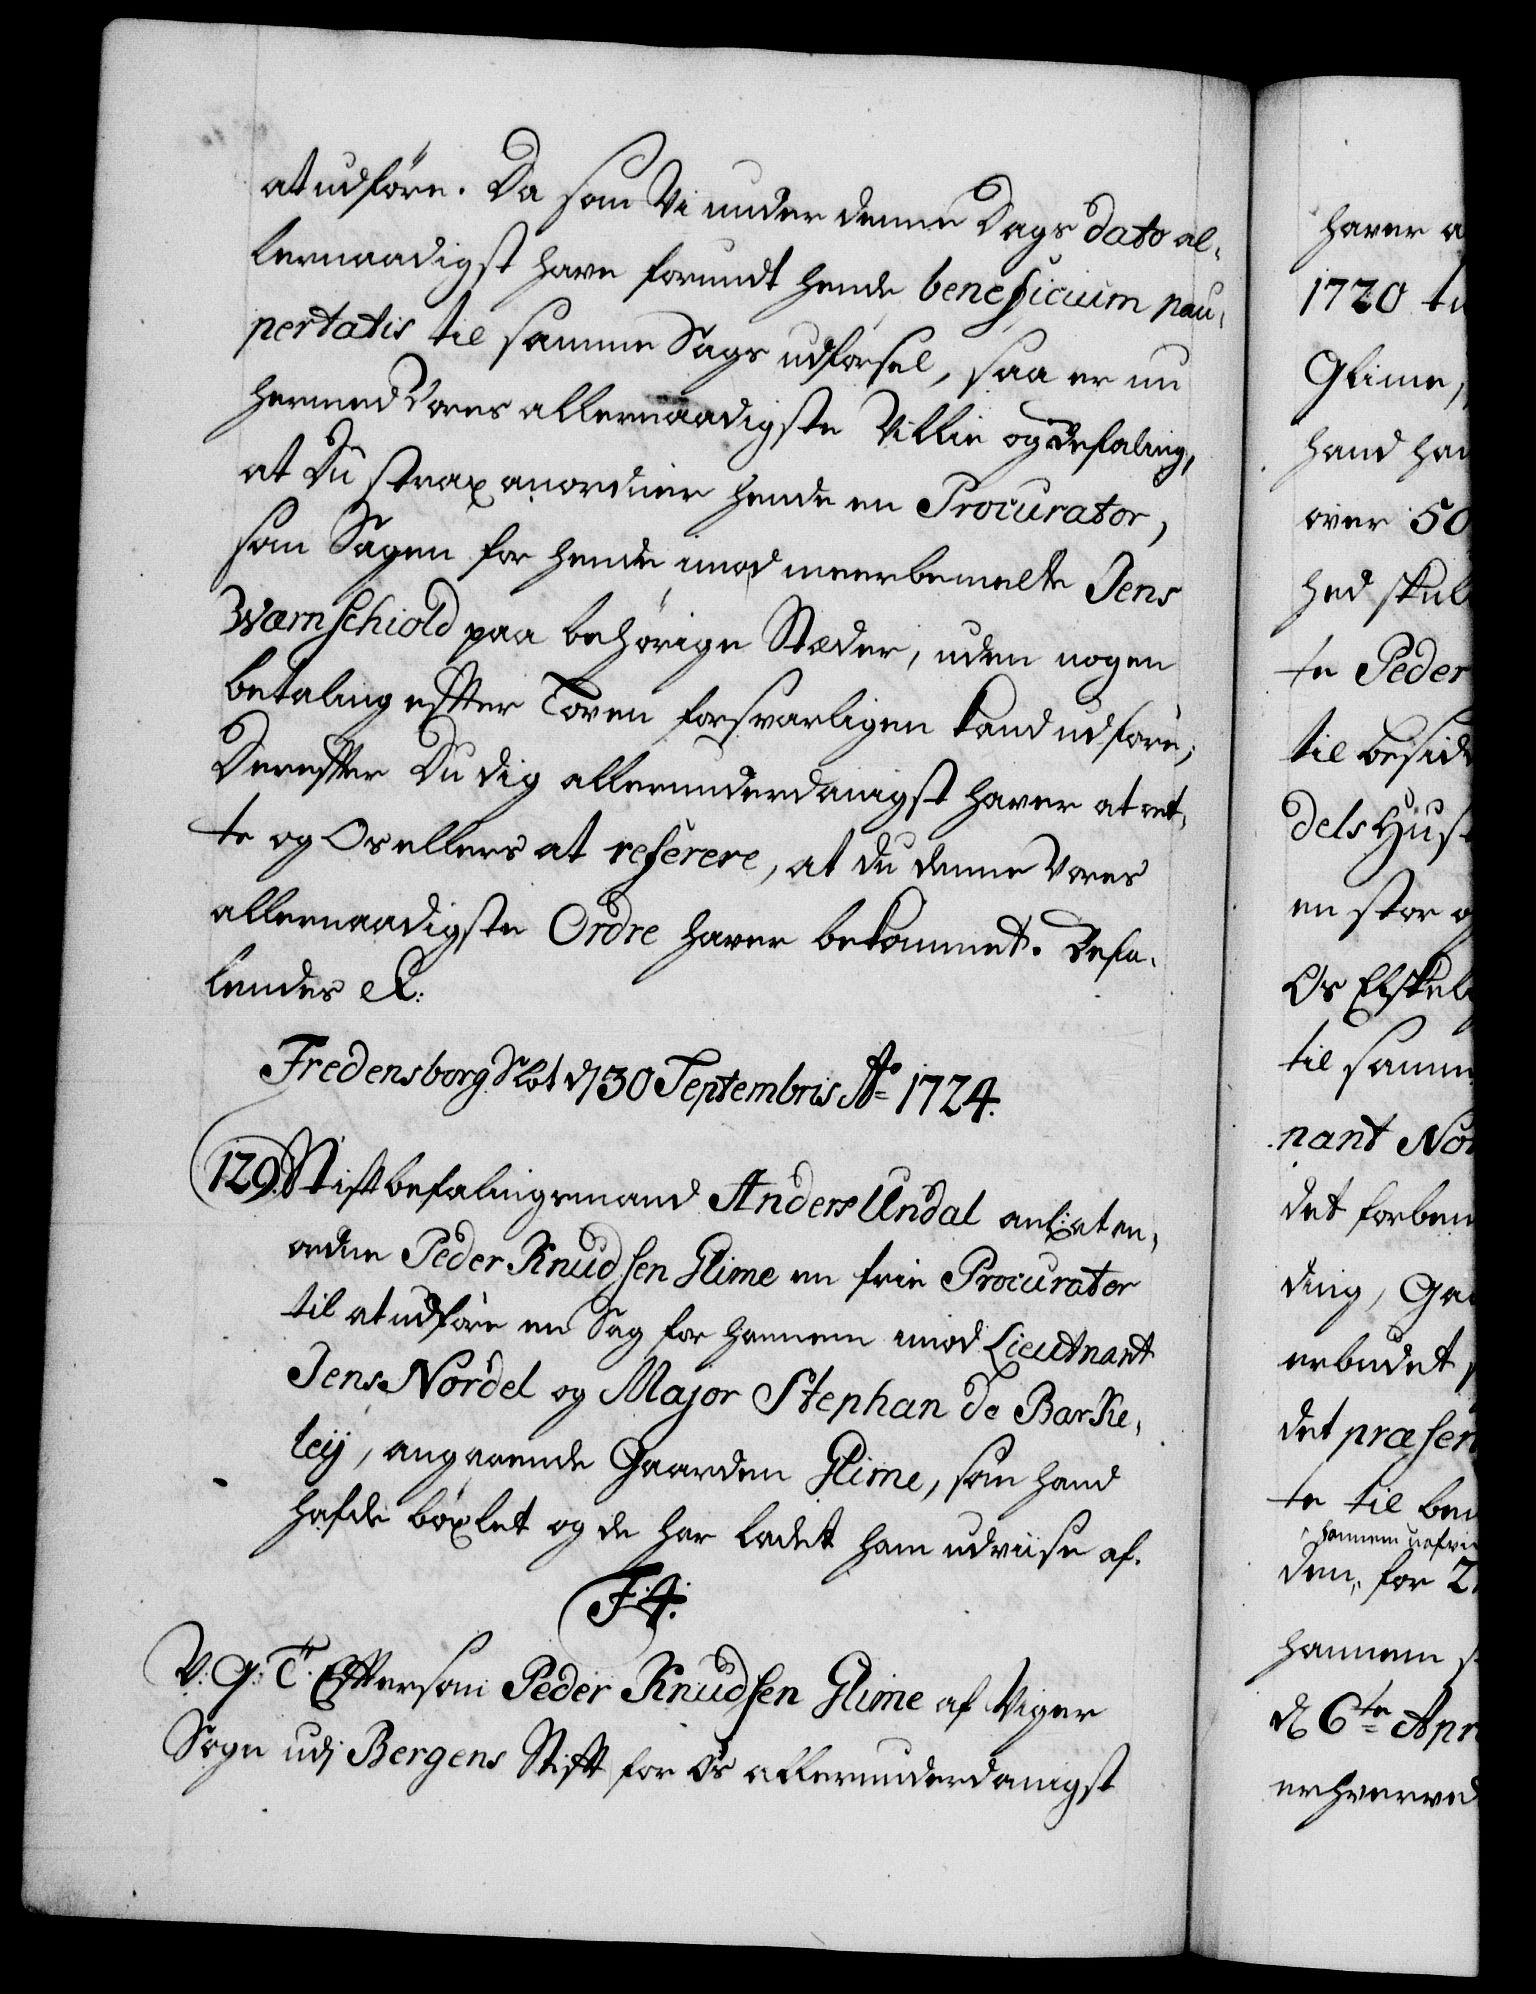 at udföre. Da som Vi under denne Dags dato al-
lernaadigst have forundt hende beneficium pau-
pertatis til samme Sags udförsel, saa er nu
hermed Vores allernaadigste Villie og Befaling,
at Du strax anordner hende en Procurator,
som Sagen for hende imod meerbemelte Jens
Warnschiold paa behörige Stæder, uden nogen
betaling effter Loven forsvarligen kand udföre;
Dereffter Du dig allerunderdanigst haver at ret-
te og Os ellers at referere, at du denne Vores
allernaadigste Ordre haver bekommet. Befa-
lendes &:
Fredensborg Slot d 30 Septembris Ao 1724.
129. Stiftbefalingsmand Anders Undal anl: at an-
ordne Peder Knudsen Glime en frie Procurator
til at udföre en Sag for hannem imod Lieutnant
Jens Nordel og Major Stephan de Barke-
leij, angaaende Gaarden Glime, som hand
hafde böxlet og de har ladet ham udviise af.
F:4.
V: G: T: Efftersom Peder Knudsen Glime af Viger
Sogn udj Bergens Stifft for Os allerunderdanigst
haver a
1720 ti
Glime,
hand ha
over 50
hed skul
te Peder
til besid
dels Hust
en stor o
Os Elskel
til samm
nant Nor
det forben
ding, Ga
erbudet
det præsen
te til be
hannem
den, for 2
hannem s
d 6te Apri
erhverved